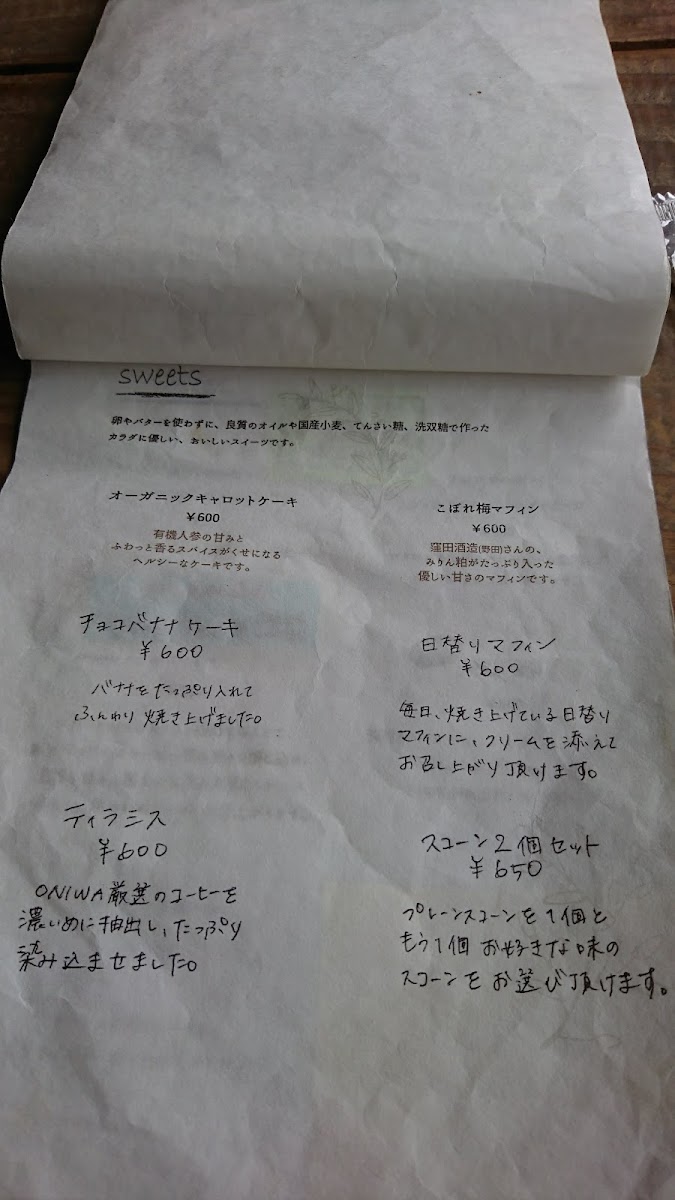 sweets
卵やバターを使わずに、良質のオイルや国産小麦、てんさい糖、洗双糖で作った
カラダに優しい、おいしいスイーツです。
オーガニックキャロットケーキ
¥600
有機人参の甘みと
ふわっと香るスパイスがくせになる
ヘルシーなケーキです。
チョコバナナケーキ
¥600
バナナをたっぷり入れて
ふんわり焼き上げました。
ティラミス
¥600
ONIWA厳選のコーヒーを
濃いめに抽出し、たっぷり
染み込ませました。
こぼれ梅マフィン
¥600
窪田酒造(野田)さんの、
みりん粕がたっぷり入った
優しい甘さのマフィンです。
日替りマフィン
¥600
毎日、焼き上げている日替り
マフィンに、クリームを添えて
お召し上がり頂けます。
スコーン2個セット
¥650
プレーンスコーンを1個と
もう1個お好きな味の
スコーンをお選び頂けます。